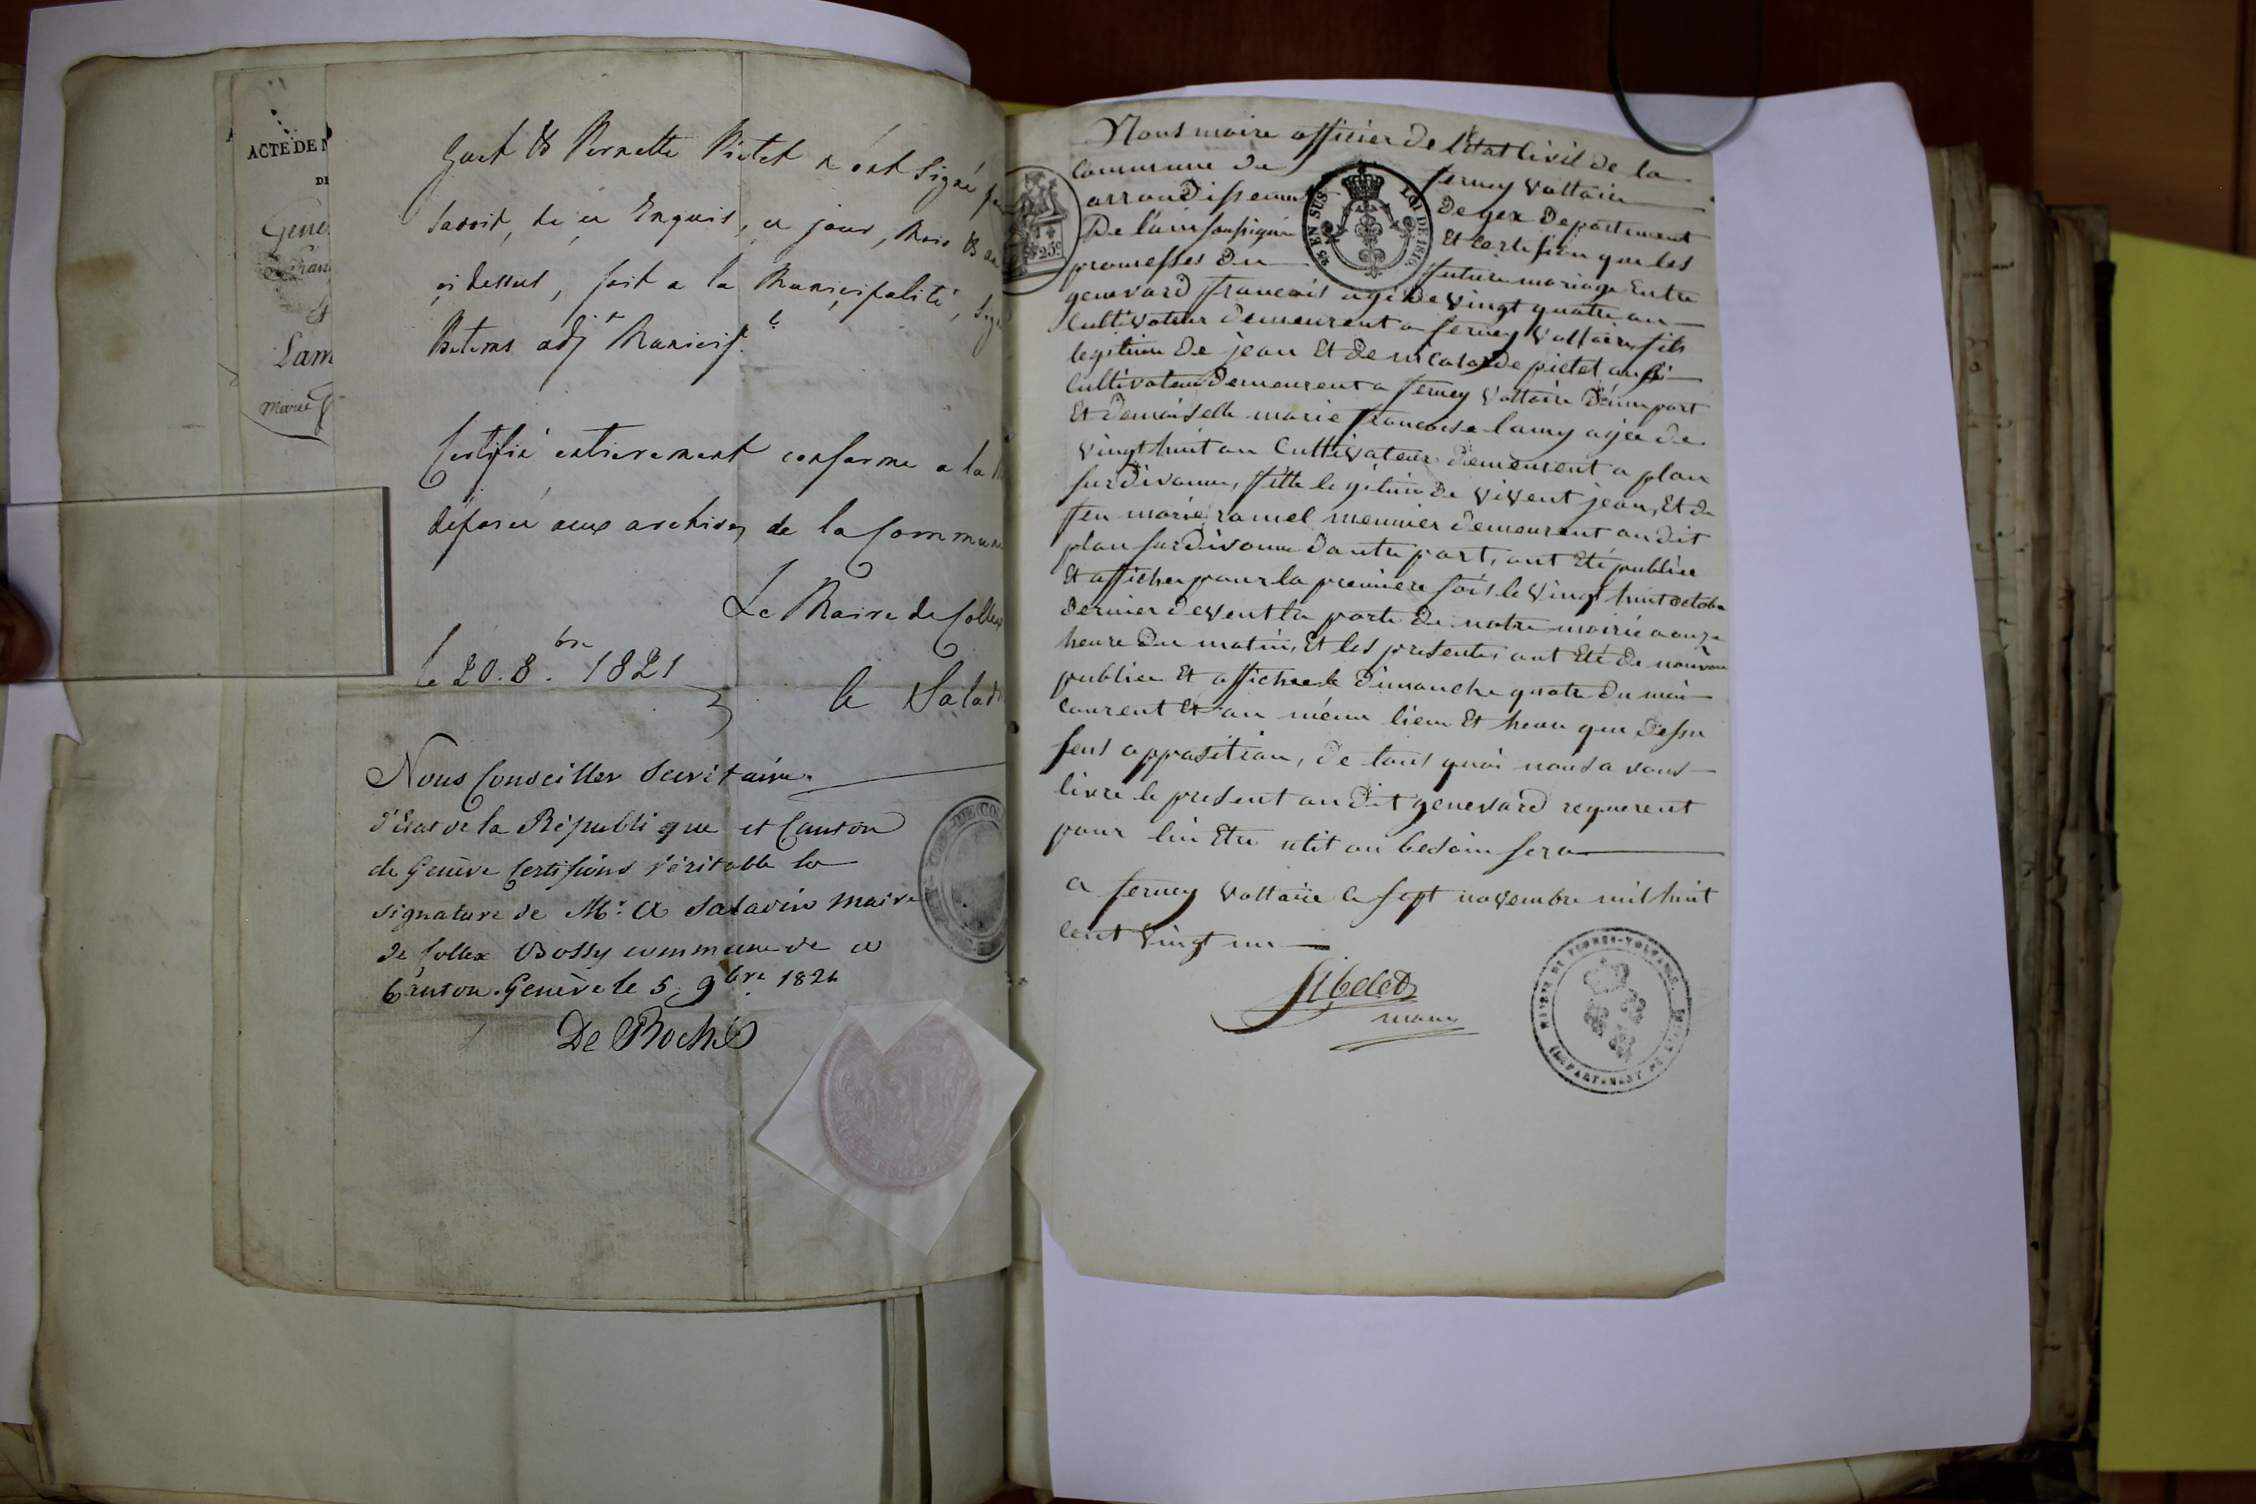 ACTE DE
Gene
Fran
et
Lam
Marie
Gard & Pernette Pictet n'ont signé
Savoir, de ce Enquis, ce jour, Mois & an
ci dessus, fait a la Municipalité,
adjt Municipl
Certifié entierement conforme a la
déposée aux archives de la Commune
Le Maire de Collex
le 20. 8bre 1821
A Saladi
Nous Conseiller Secrétaire
d'Etat de la République et Canton
de Genève Certifions Véritable la
signature de Mr A Saladin Maire
de Collex Bossy commune de ce
Canton. Genève le 5. 9bre 1821
De Roche
Nous maire officier de l'état Civil de la
commune de ferney Voltaire
arrondissement de gex Departement
De l'ain soussigné Et certifion que les
promesses du future mariage Entre
genevard françois agé De vingt quatre an
Cultivateur demeurent a ferney Voltaire fils
legitime De jean Et de nicolarde pictet aussi
Cultivateur Demeurent a ferney Voltaire D'une part
Et demoiselle marie francoise lamy agée de
vingt huit an Cultivateur demeurent a plan
sur divonne, fille legitime De vivent jean, Et de
feu marie ramel meunier demeurent au dit
plan sur divonne D'autre part, ont Eté publiée
Et afficher pour la premiere fois le vingt huit octobre
dernier devent la porte De notre mairie a onze
heure Du matin, Et les presentes ont Eté De nouveau
publiée Et affichee le dimanche quatre Du moi
courent Et au même lieux Et heure que Dessu
sens opposition, De tout quoi nous avons
livre le present au Dit genevard requerent
pour lui Etre utit au besoin sera
a ferney Voltaire le sept novembre mil huit
cent vingt un
maire
25 EN SUS
LOI DE 1816.
25c.
MAIRIE DE FERNEY-VOLTAIRE.